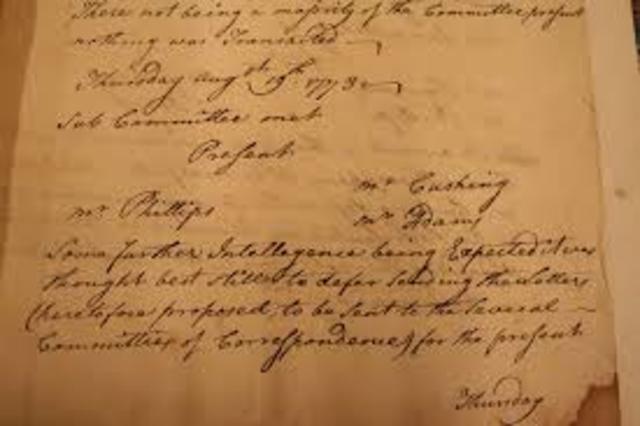 There not being a majority of the Committee present
nothing was Transacted
Thursday Augst 19th 1773
Sub Committee met
Present
Mr Cushing
Mr Phillips Mr Adams
Some farther Intellegence being Expected it was
thought best still to defer sending the Letters
(heretofore proposed, to be sent to the Several
Committees of Correspondence) for the present
Thursday